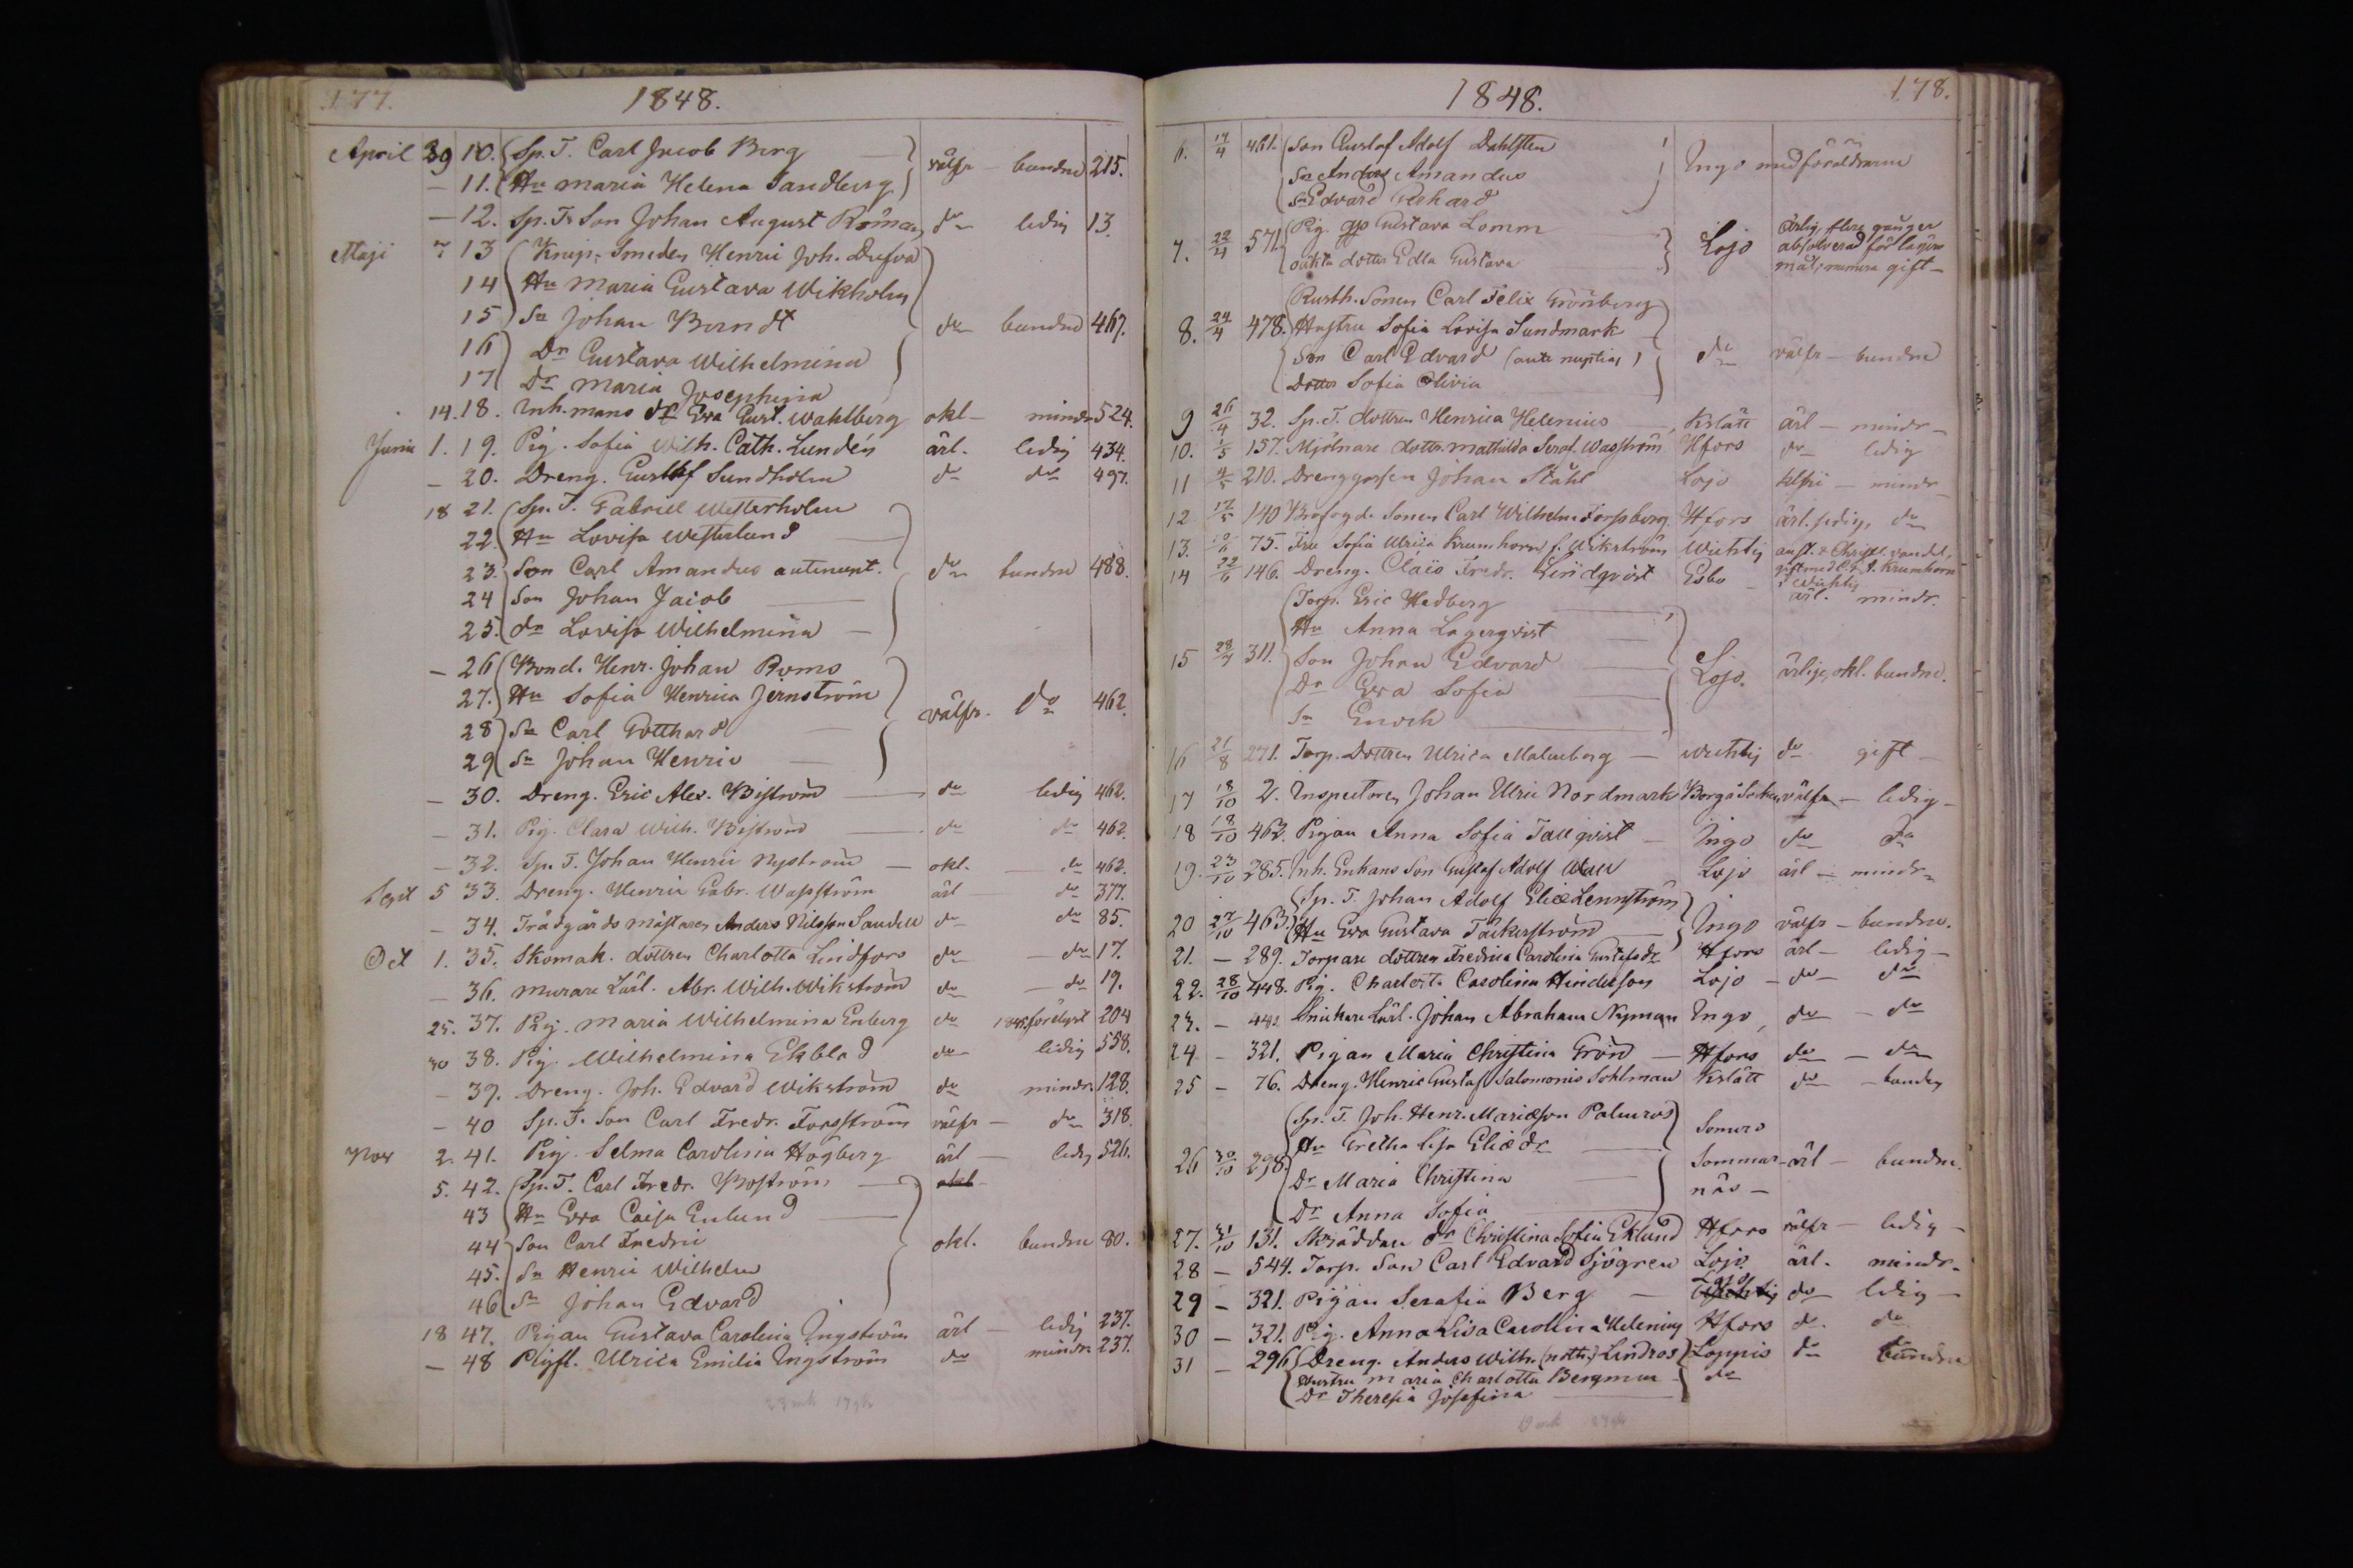 177. 1848.
April 30 10. Sp. T. Carl Jacob Berg välfr — bundne 215.
— 11. Hu Maria Helena Sandberg
— 12. Sp. Ts Son Johan August Roman do ledig 13.
Maji 7 13 Knip-Smeden Henric Joh. Dufva
14 Hu Maria Gustava Wikholm
15 Sn Johan Berndt do bundne 467.
16 Dr Gustava Wilhelmina
17 Dr Maria Josephina
14. 18. Inh. mans dr Eva Gust. Wahlberg okl — mindr 524.
Junii 1. 19. Pig. Sofia Wilh. Cath. Lundén ärl. ledig 434.
— 20. Dreng. Gustaf Sundholm do do 497.
18 21. Sp. T. Gabriel Westerholm
22. Hu Lovisa Westerlund
23. Son Carl Amandus antenupt. do bundne 488.
24 Son Johan Jacob
25. dr Lovisa Wilhelmina
— 26 Bond. Henr. Johan Roms
27. Hu Sofia Henrica Jernström välfr. do 462.
28 Sn Carl Gotthard
29 Sn Johan Henric
— 30. Dreng. Eric Alex. Biström do ledig 462.
— 31. Pig. Clara Wilh. Biström do do 462.
— 32. Sp. T. Johan Henric Nyström — okl. — do 462.
Sept 5 33. Dreng. Henric Gabr. Wasström ärl do 377.
— 34. Trädgårds mästaren Anders Nilsson Sandell do do 85.
Oct 1. 35. Skomak. dottren Charlotta Lindfors do — do 17.
— 36. Murare Lärl. Abr. Wilh. Wikström do — do 19.
25. 37. Pig. Maria Wilhelmina Enberg do 1845 förelyst 204
30 38. Pig. Wilhelmina Ekblad do ledig 558.
— 39. Dreng. Joh. Edvard Wikström do mindr 128.
— 40 Sp. T. Son Carl Fredr. Forsström välfr — do 318.
Nov 2. 41. Pig. Selma Carolina Högberg ärl — ledig 526.
5. 42. Sp. T. Carl Fredr. Boström okl
43 Hu Eva Caisa Enlund
44 Son Carl Fredric okl. bundne 80.
45. Sn Henric Wilhelm
46 Sn Johan Edvard
18 47. Pigan Gustava Carolina Ingström ärl — ledig 237.
— 48 Pigfl. Ulrica Emilia Ingström do mindr 237.
1848. 178.
6. 17/4 461. Son Gustaf Adolf Dahlsten
Sn Anders Amandus Ingo med föräldrarne
Sn Edvard Gerhard
7. 22/4 571. Pig. Gustava Lomm Lojo ärlig, flere gånger
oäkta dotter Edla Gustava absolverad för lägers
mål; numera gift —
Rusth. Sonen Carl Felix Grönberg
8. 24/4 478. Hustru Sofia Lovisa Sundmark
Son Carl Edvard (ante nuptias) do välfr — bundne
Dotter Sofia Olivia
9 26/4 32. Sp. T. dottren Henrica Helenius — Kslätt ärl — mindr —
10. 1/5 157. Mjölnare dottr. Mathilda Seraf. Wasström Hfors do ledig
11 4/5 210. Drenggossen Johan Ståhl Lojo — mindr —
12 17/5 140 Brofogde Sonen Carl Wilhelm Forssberg. Hfors ärl. sedig, do
13. 75. Fru Sofia Ulrica Krumhorn f. Wikström Wichtis anst. & Christl. vandel,
14 22/6 146. Dreng. Claës Fredr. Lindqvist Esbo — gift med Krumhorn
i Wichtis
ärl. mindr.
Torp. Eric Hedberg
Hu Anna Lagerqvist
15 311. Son Johan Edvard Lojo. ärlige, okl. bundne.
Dr Eva Sofia
Sn Enoch
16 21/8 271. Torp. Dottren Ulrica Malmberg — Wichtis do gift —
17 18/10 2. Inspectoren Johan Ulric Nordmark Borgå Socken välfr — ledig —
18 18/10 462. Pigan Anna Sofia Tallqvist — Ingo do do
19. 23/10 285. Inh. Enkans Son Gustaf Adolf Wall Lojo ärl — mindr —
Sp. T. Johan Adolf Eliæ Lennström
20 27/10 463. Hu Eva Gustava Tackerström Ingo välfr — bundne.
21. — 289. Torpare dottren Fredrica Carolina Gustafsdr Hfors ärl — ledig —
22. 28/10 448. Pig. Charlotta Carolina Hindersson Lojo — do — do
23. — 441. Snickare Lärl. Johan Abraham Nyman Ingo, do — do
24 — 321. Pigan Maria Christina Grön — Hfors do — do
25 — 76. Dreng. Henric Gustaf Salomonis Sohlman Kslätt do — bunden
Sp. T. Joh. Henr. Mariæson Palmros Somero
Hu Gretha Lisa Eliædr
26 30/10 298. Dr Maria Christina Sommar- ärl — bundne.
Dr Anna Sofia näs —
27. 31/10 131. Skräddare dr Christina Sofia Eklund Hfors välfr — ledig —
28 — 544. Torp. Son Carl Edvard Sjögren Lojo. ärl. mindr.
29 — 321. Pigan Serafia Berg — Lojo Wichtis do — ledig —
30 — 321. Pig. Anna Lisa Carolina Helenius Hfors do. do
31 — 296 Dreng. Anders Wilh. (noth.) Lindros Loppis do bundne
Hustru Maria Charlotta Bergman do
Dr Theresia Josefina